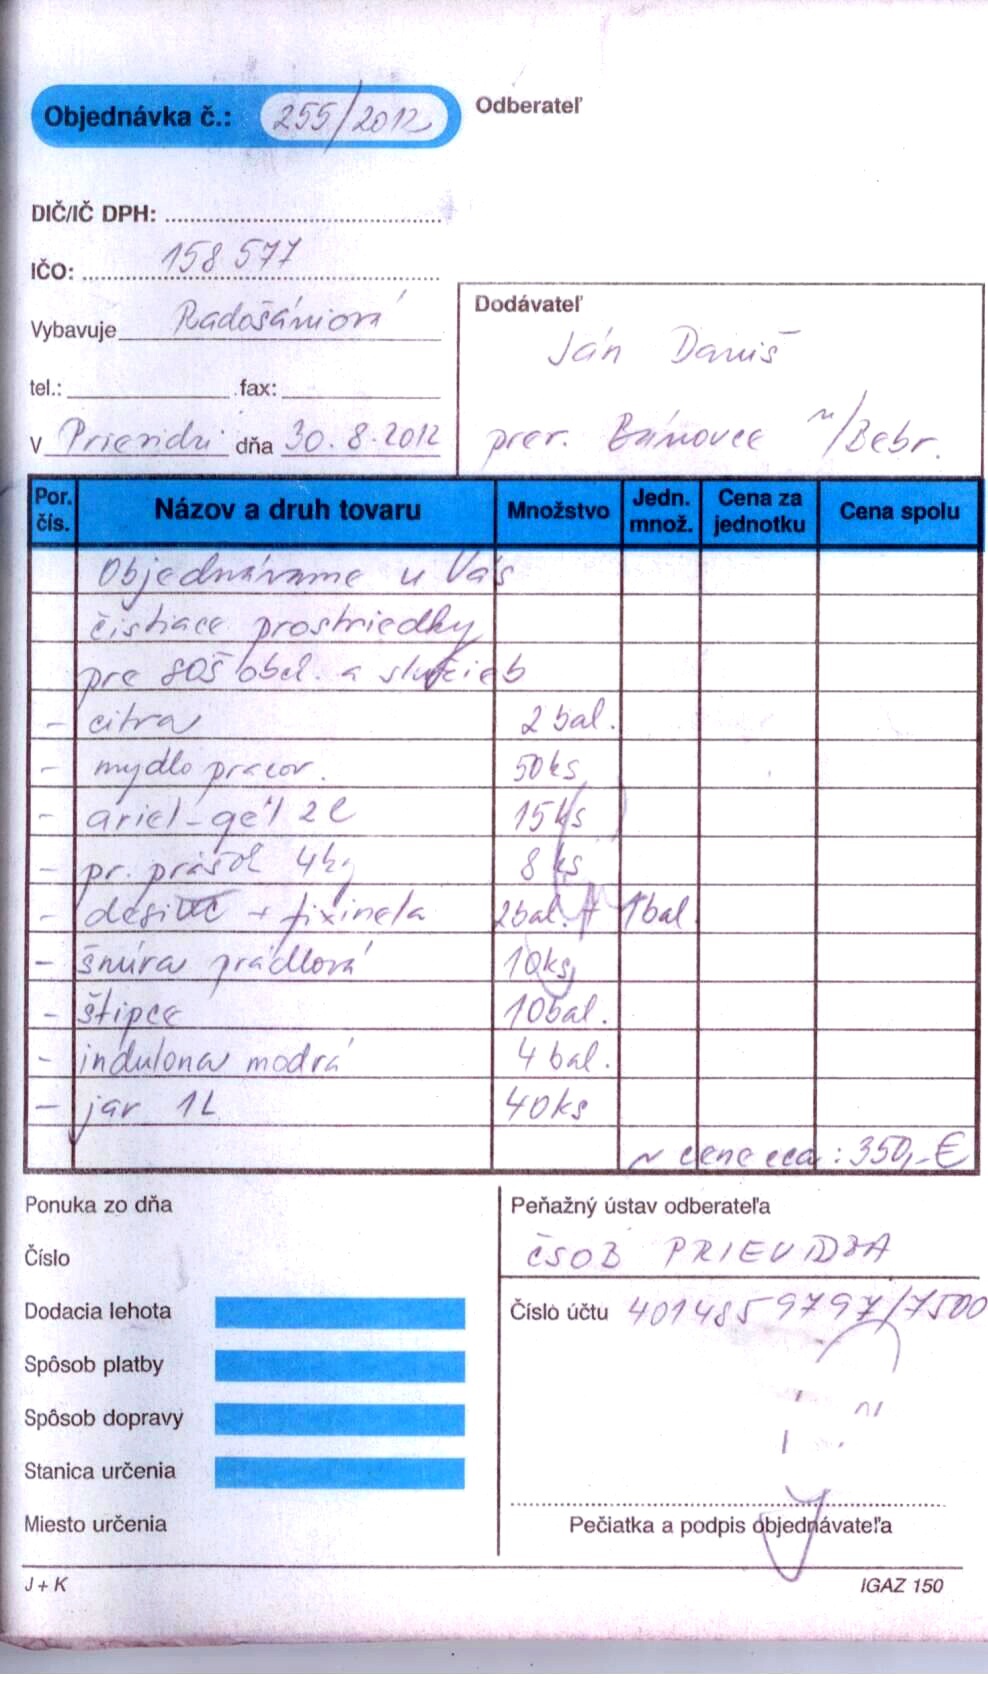 Objednávka č.: 255/2012
Odberateľ
DIČ/IČ DPH:
IČO: 158 577
Vybavuje Radošániová
tel.: fax:
V Prievidzi dňa 30. 8. 2012
Dodávateľ
Ján Daniš
prev. Bánovce n/Bebr.
Por. čís. Názov a druh tovaru Množstvo Jedn. množ. Cena za jednotku Cena spolu
Objednávame u Vás
čistiace prostriedky
pre SOŠ obch. a služieb
- citra 2 bal.
- mydlo pracov. 50ks
- ariel-gél 2l 15ks
- pr. prášok 4kg 8 ks
- + fixinela 2bal. + 1bal
- šnúra prádlová 10ks
- štipce 10bal.
- indulona modrá 4 bal.
- jar 1L 40ks
v cene cca: 350,-€
Ponuka zo dňa
Číslo
Dodacia lehota
Spôsob platby
Spôsob dopravy
Stanica určenia
Miesto určenia
Peňažný ústav odberateľa
ČSOB PRIEVIDZA
Číslo účtu 4014859797/7500
Pečiatka a podpis objednávateľa
J + K
IGAZ 150